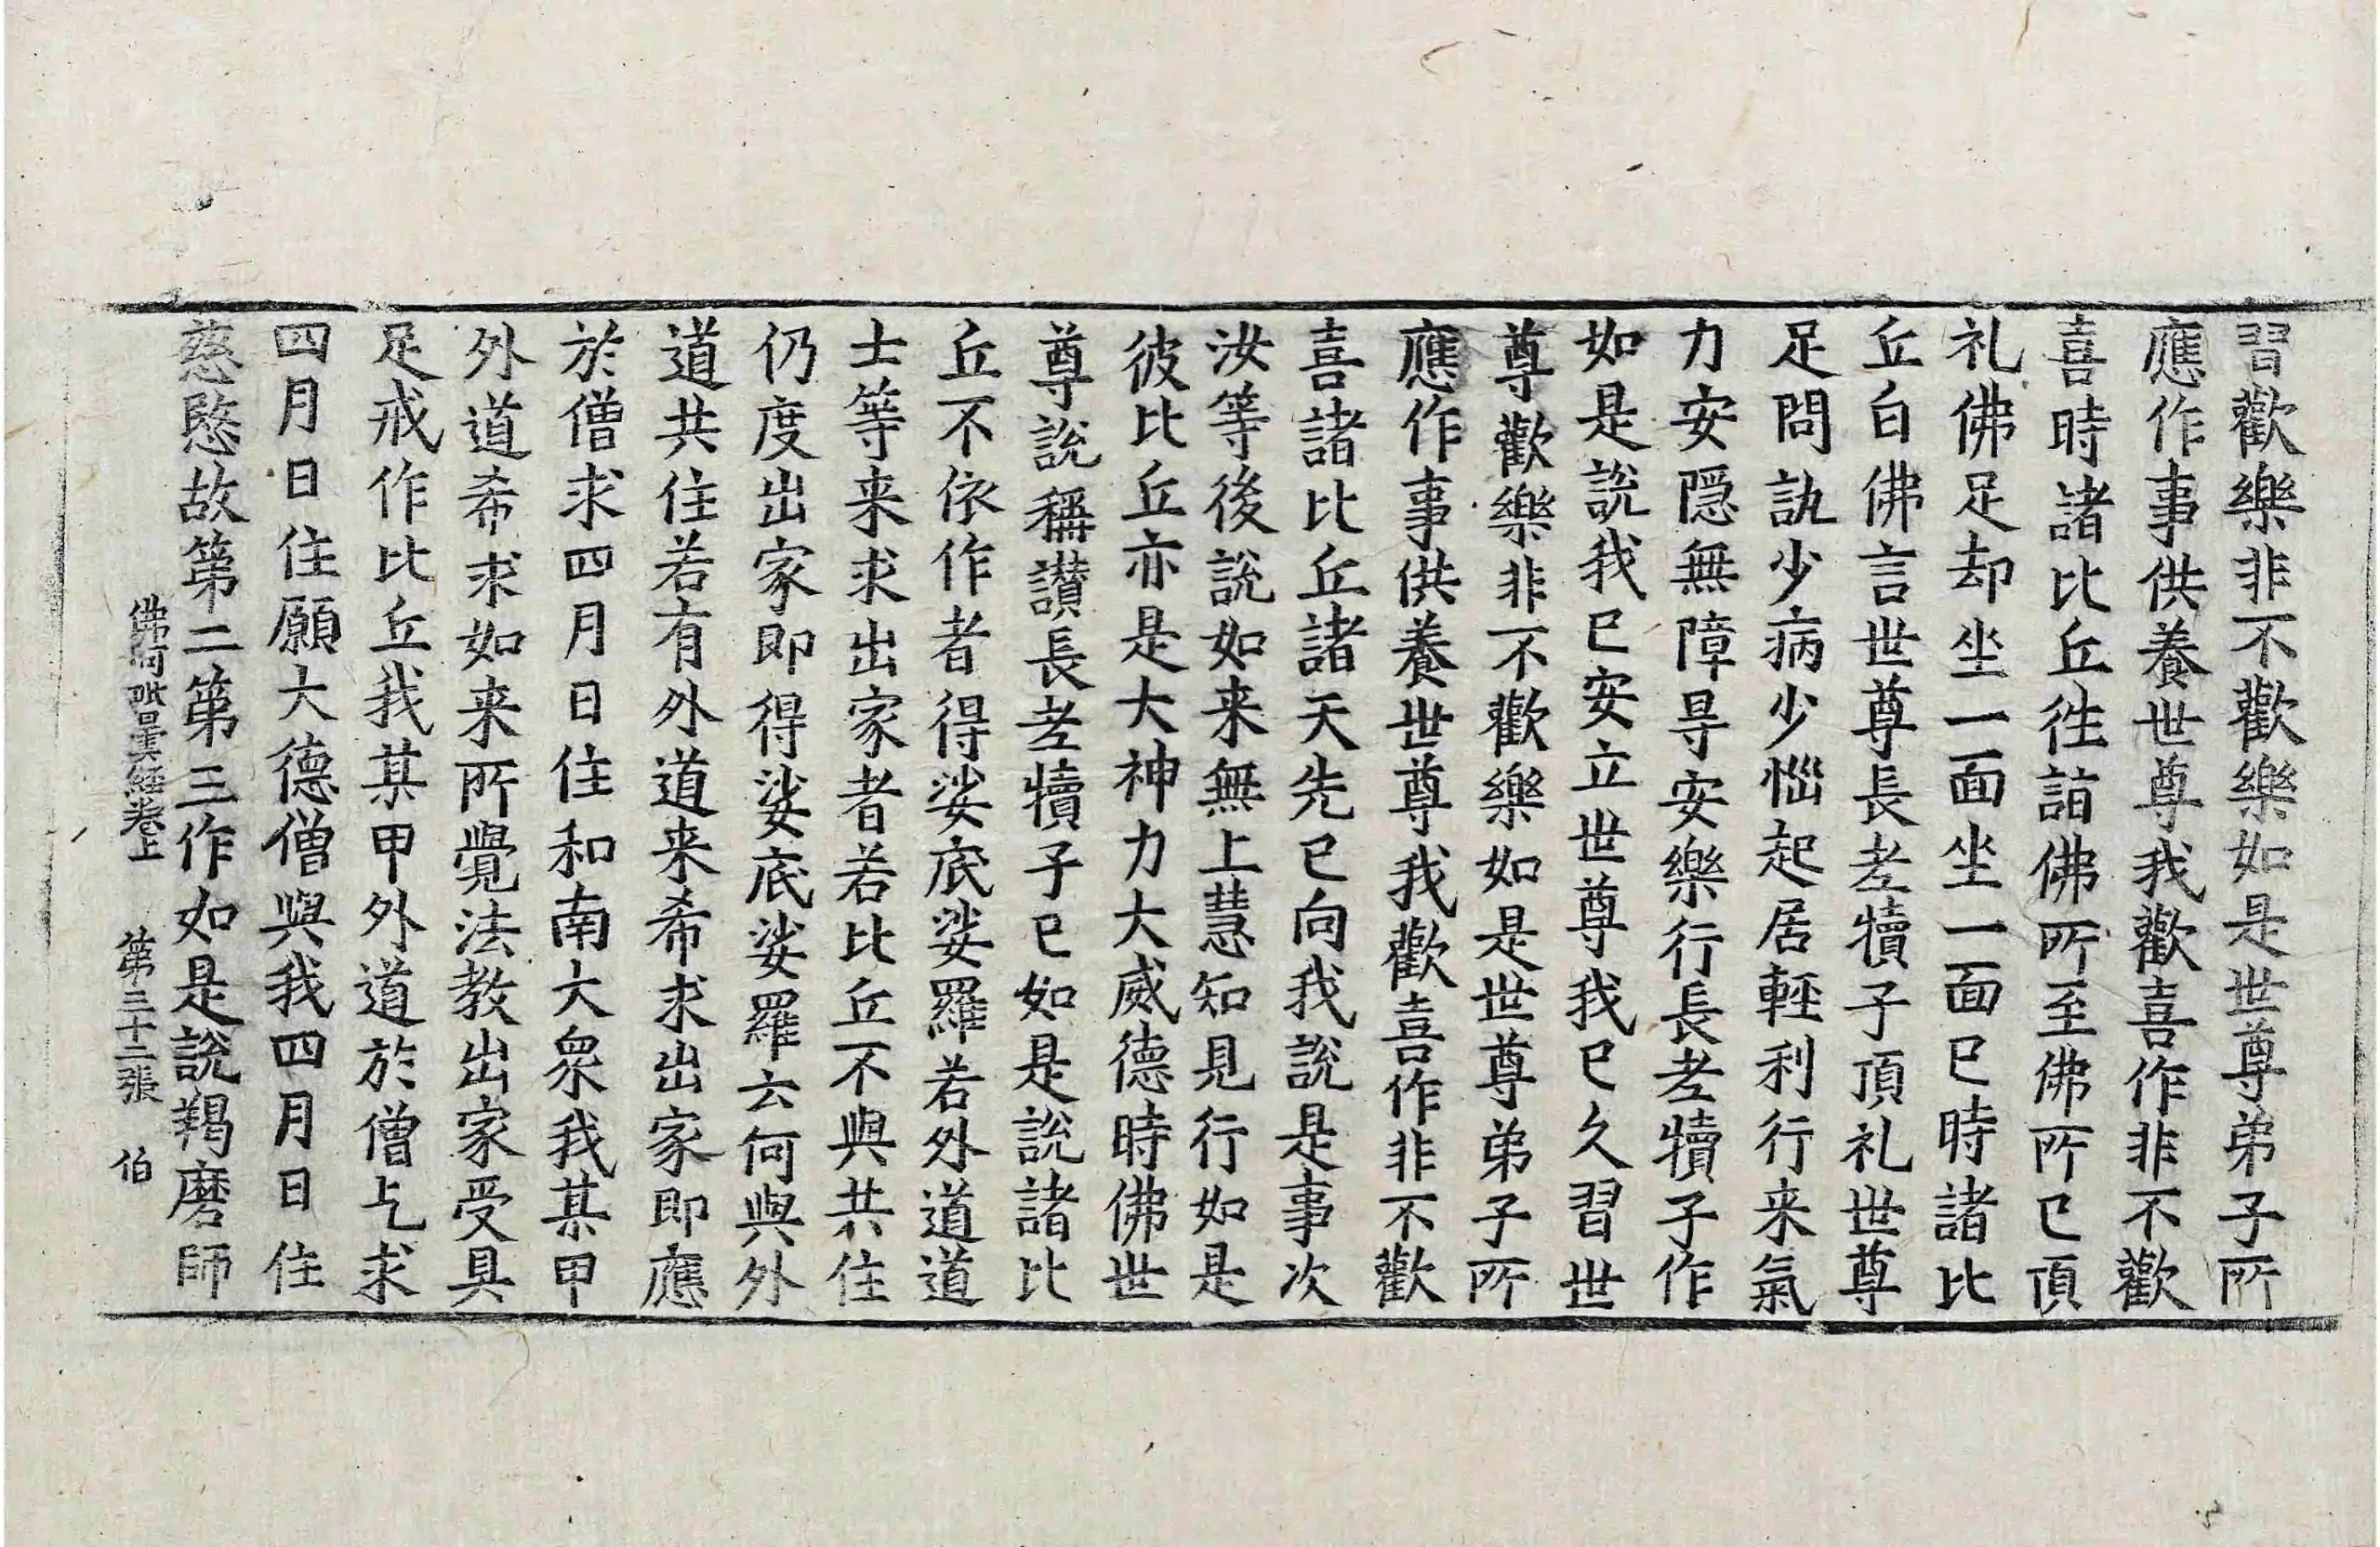 習歡樂非不歡樂如是世尊弟子所
應作事供養世尊我歡喜作非不歡
喜時諸比丘徃詣佛所至佛所已頂
礼佛足却坐一面坐一面已時諸比
丘白佛言世尊長老犢子頂礼世尊
足問訊少病少惱起居輕利行来氣
力安隱無障㝵安樂行長老犢子作
如是說我已安立世尊我已久習世
尊歡樂非不歡樂如是世尊弟子所
應作事供養世尊我歡喜作非不歡
喜諸比丘諸天先已向我說是事次
汝等後說如来無上慧知見行如是
彼比丘亦是大神力大威德時佛世
尊說稱讃長老犢子已如是說諸比
丘不依作者得娑底娑羅若外道道
士等来求出家者若比丘不與共住
仍度出家即得娑底娑羅云何與外
道共住若有外道来希求出家即應
於僧求四月日住和南大衆我某甲
外道希求如来所覺法教出家受具
足戒作比丘我某甲外道於僧乞求
四月日住願大德僧與我四月日住
慈愍故第二第三作如是說羯磨師
佛阿毗曇経卷上 第三十二張 伯